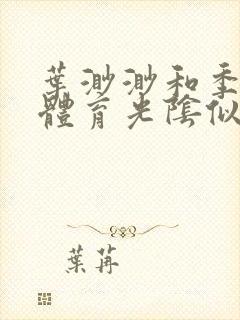 葉渺渺和季
體育光陰似
葉苒